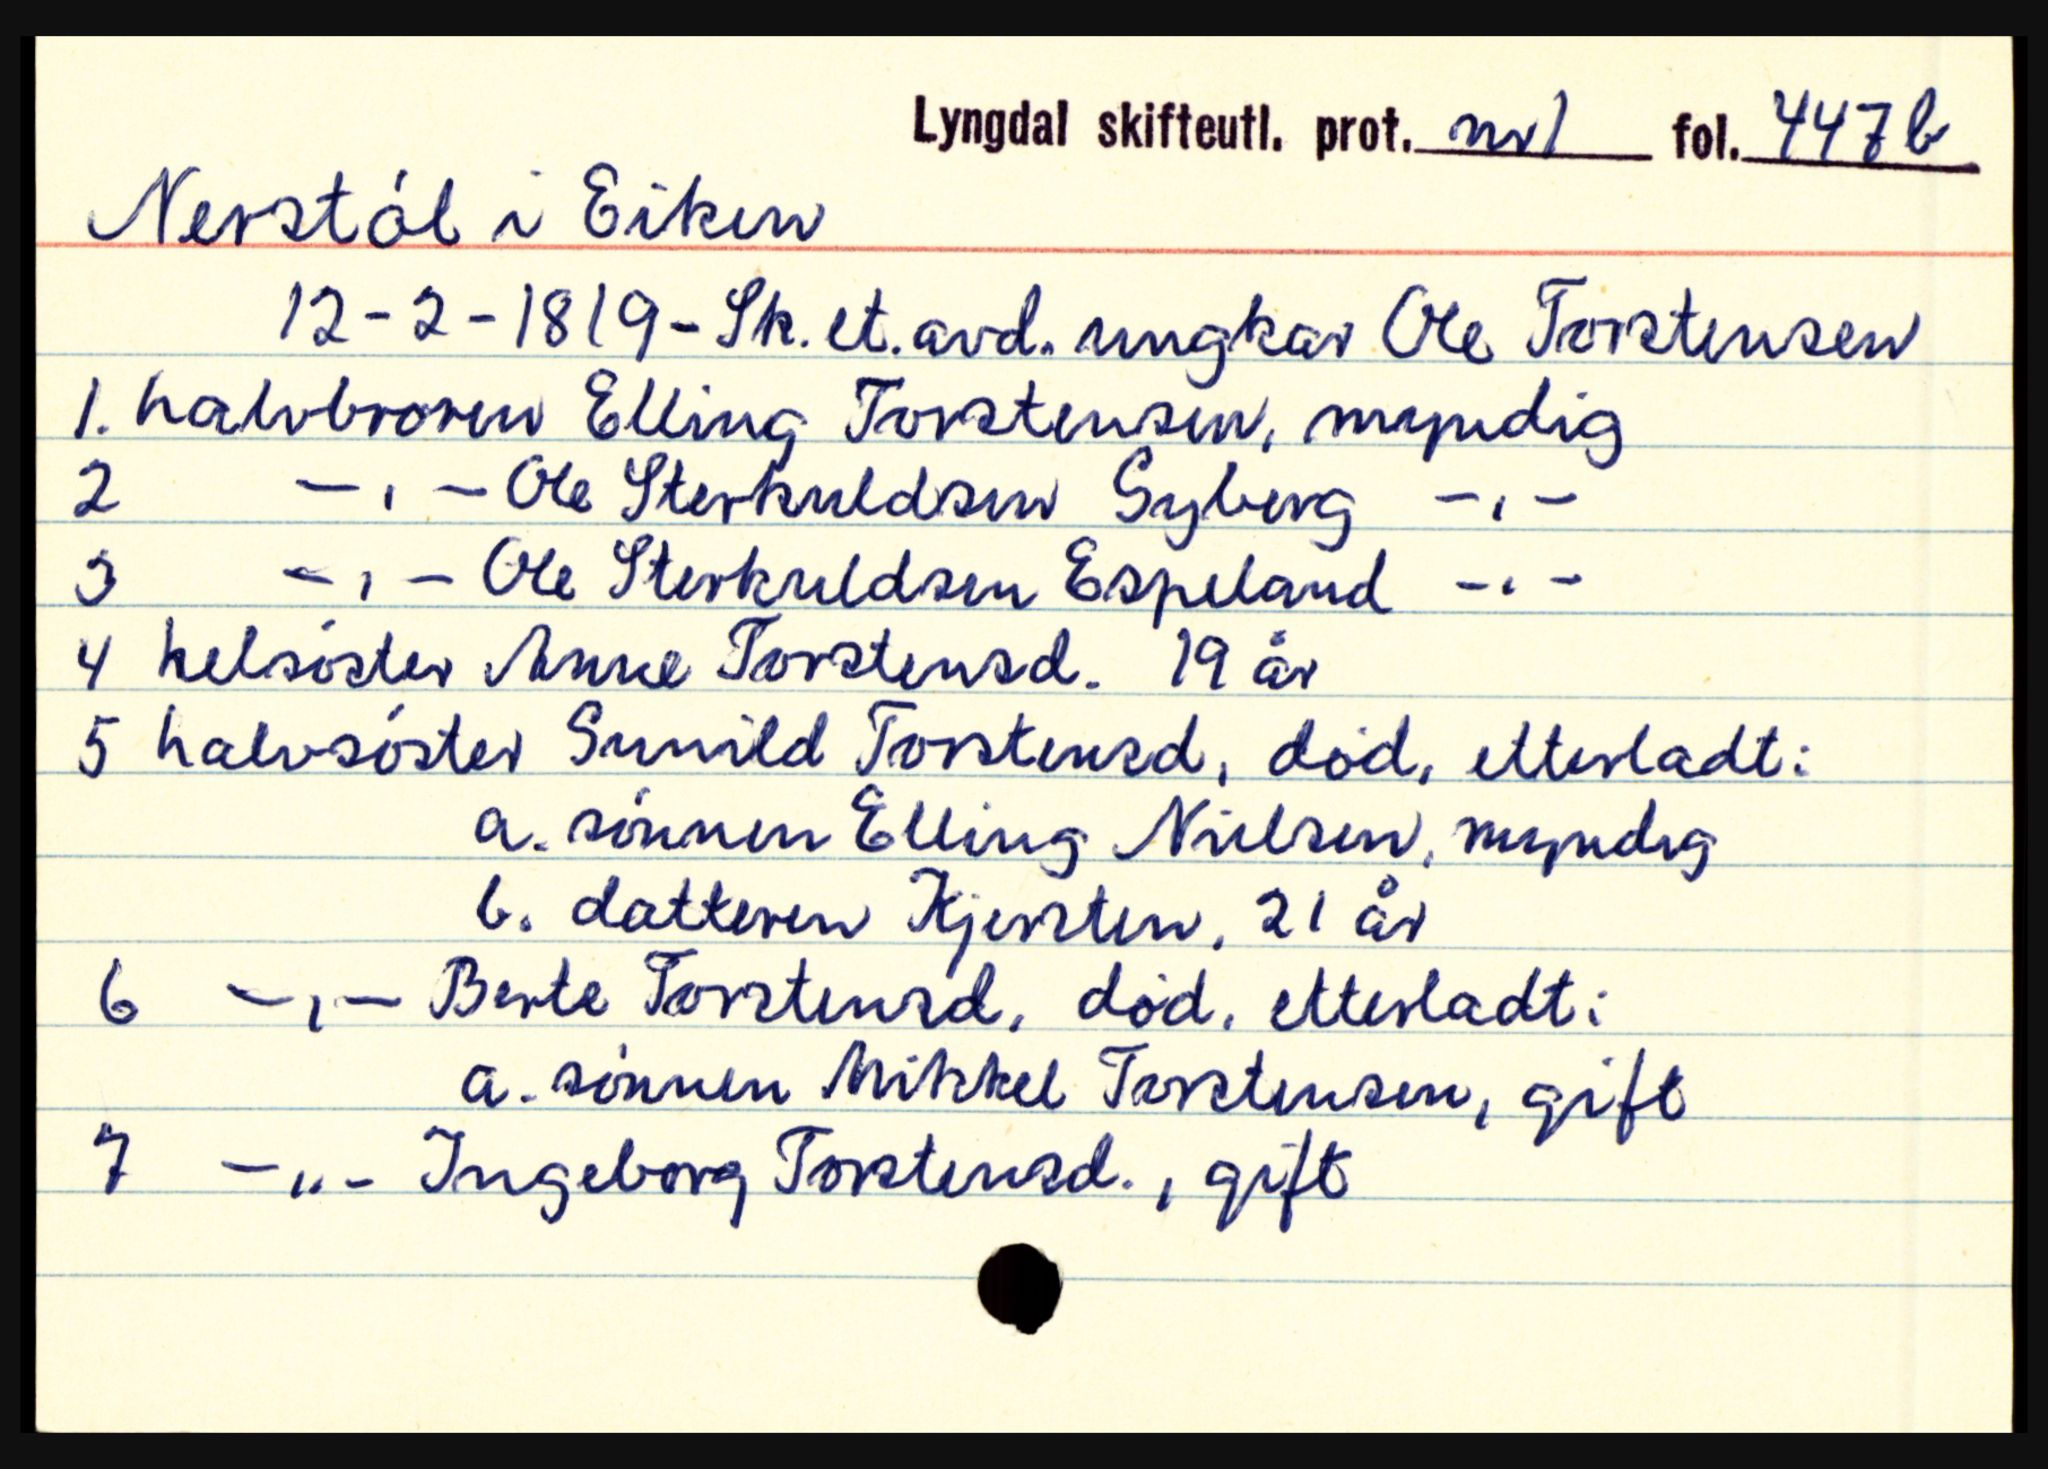 Lyngdal skifteutl. prot. nr1 fol. 447b
Nerstøl i Eiken
12-2-1819 - Sk. et. avd. ungkar Ole Torstensen
1. halvbroren Elling Torstensen, myndig
2 - , - Ole Sterkuldsen Gyberg - , -
3 - , - Ole Sterkuldsen Espeland - , -
4 helsøster Anne Torstensd. 19 år
5 halvsøster Gunild Torstensd, død, etterladt:
a. sønnen Elling Nielsen, myndig
b. datteren Kjersten, 21 år
6 - , - Berte Torstensd, død, etterladt:
a. sønnen Mikkel Torstensen, gift
7 - „ - Ingeborg Torstensd., gift